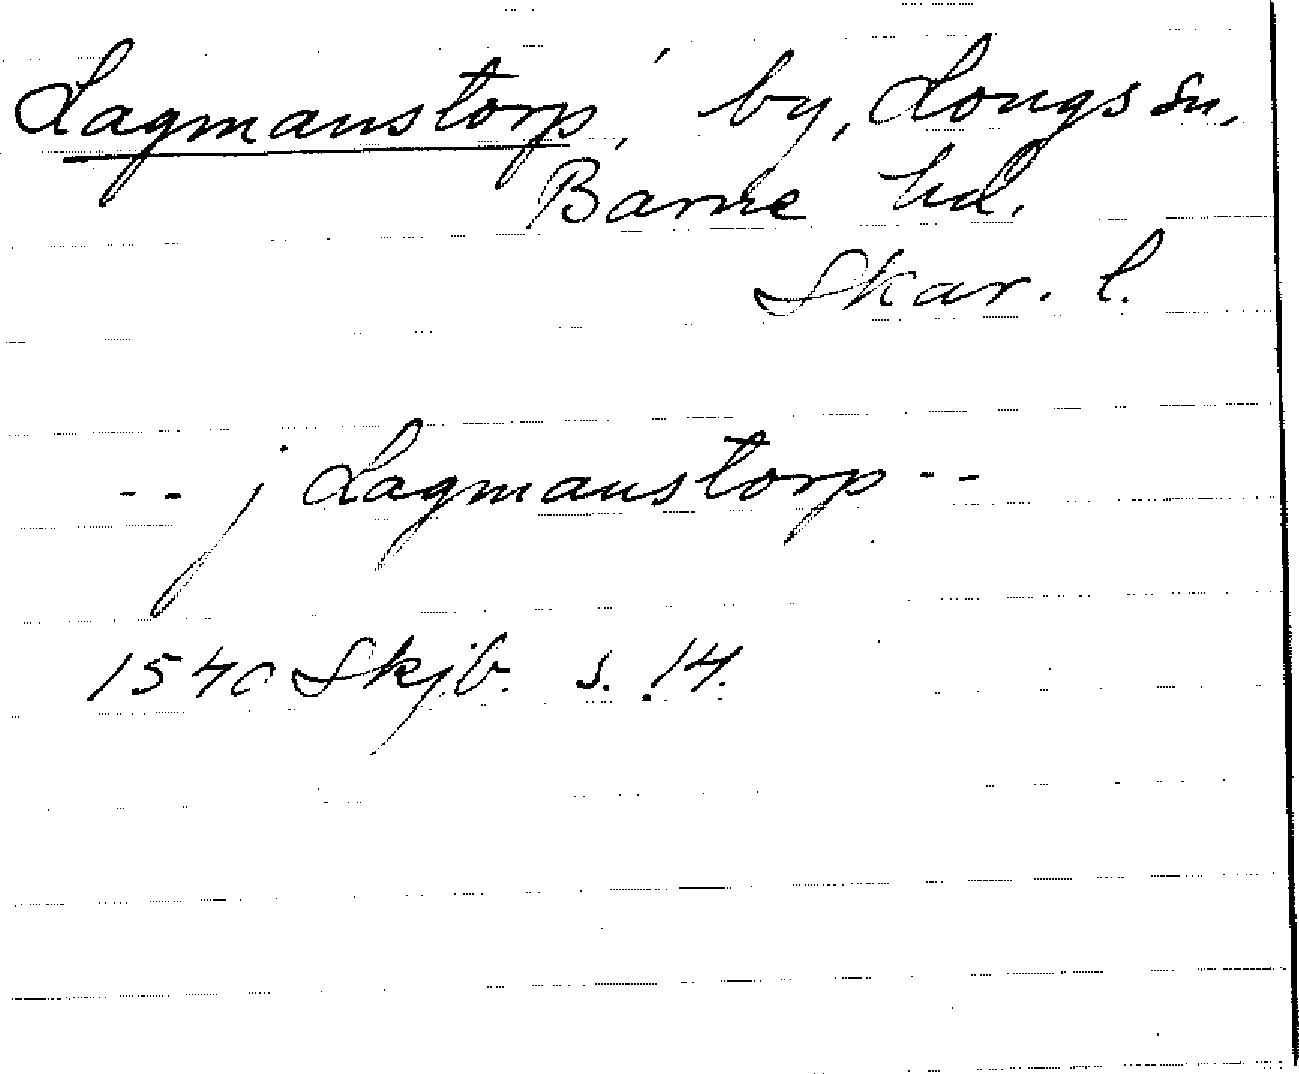 Lagmanstorp, by, Longs sn,
Barne hd.
Skar. l.
-- j Lagmanstorp --
1540 Skjb. s. 14.